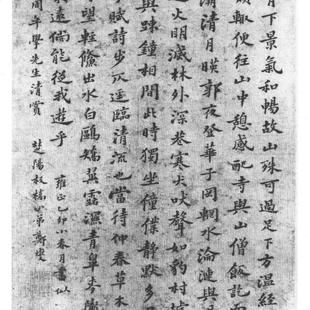 月下景氣和暢故山殊可過足下方溫經
煩輒便往山中憩感配寺與山僧飯訖而
灞清月暎郭夜登華子岡輞水淪漣與
遠火明滅林外深巷寒犬吠聲如豹村墟
與踈鐘相間此時獨坐僮僕靜默多
手賦詩步仄逕臨清流也當待仲春草木
望輕鯈出水白鷗矯翼露溼青皋麥隴
遠倘能從我遊乎 雍正乙卯小春月書似
周年學先生清賞 楚陽教 弟蔣